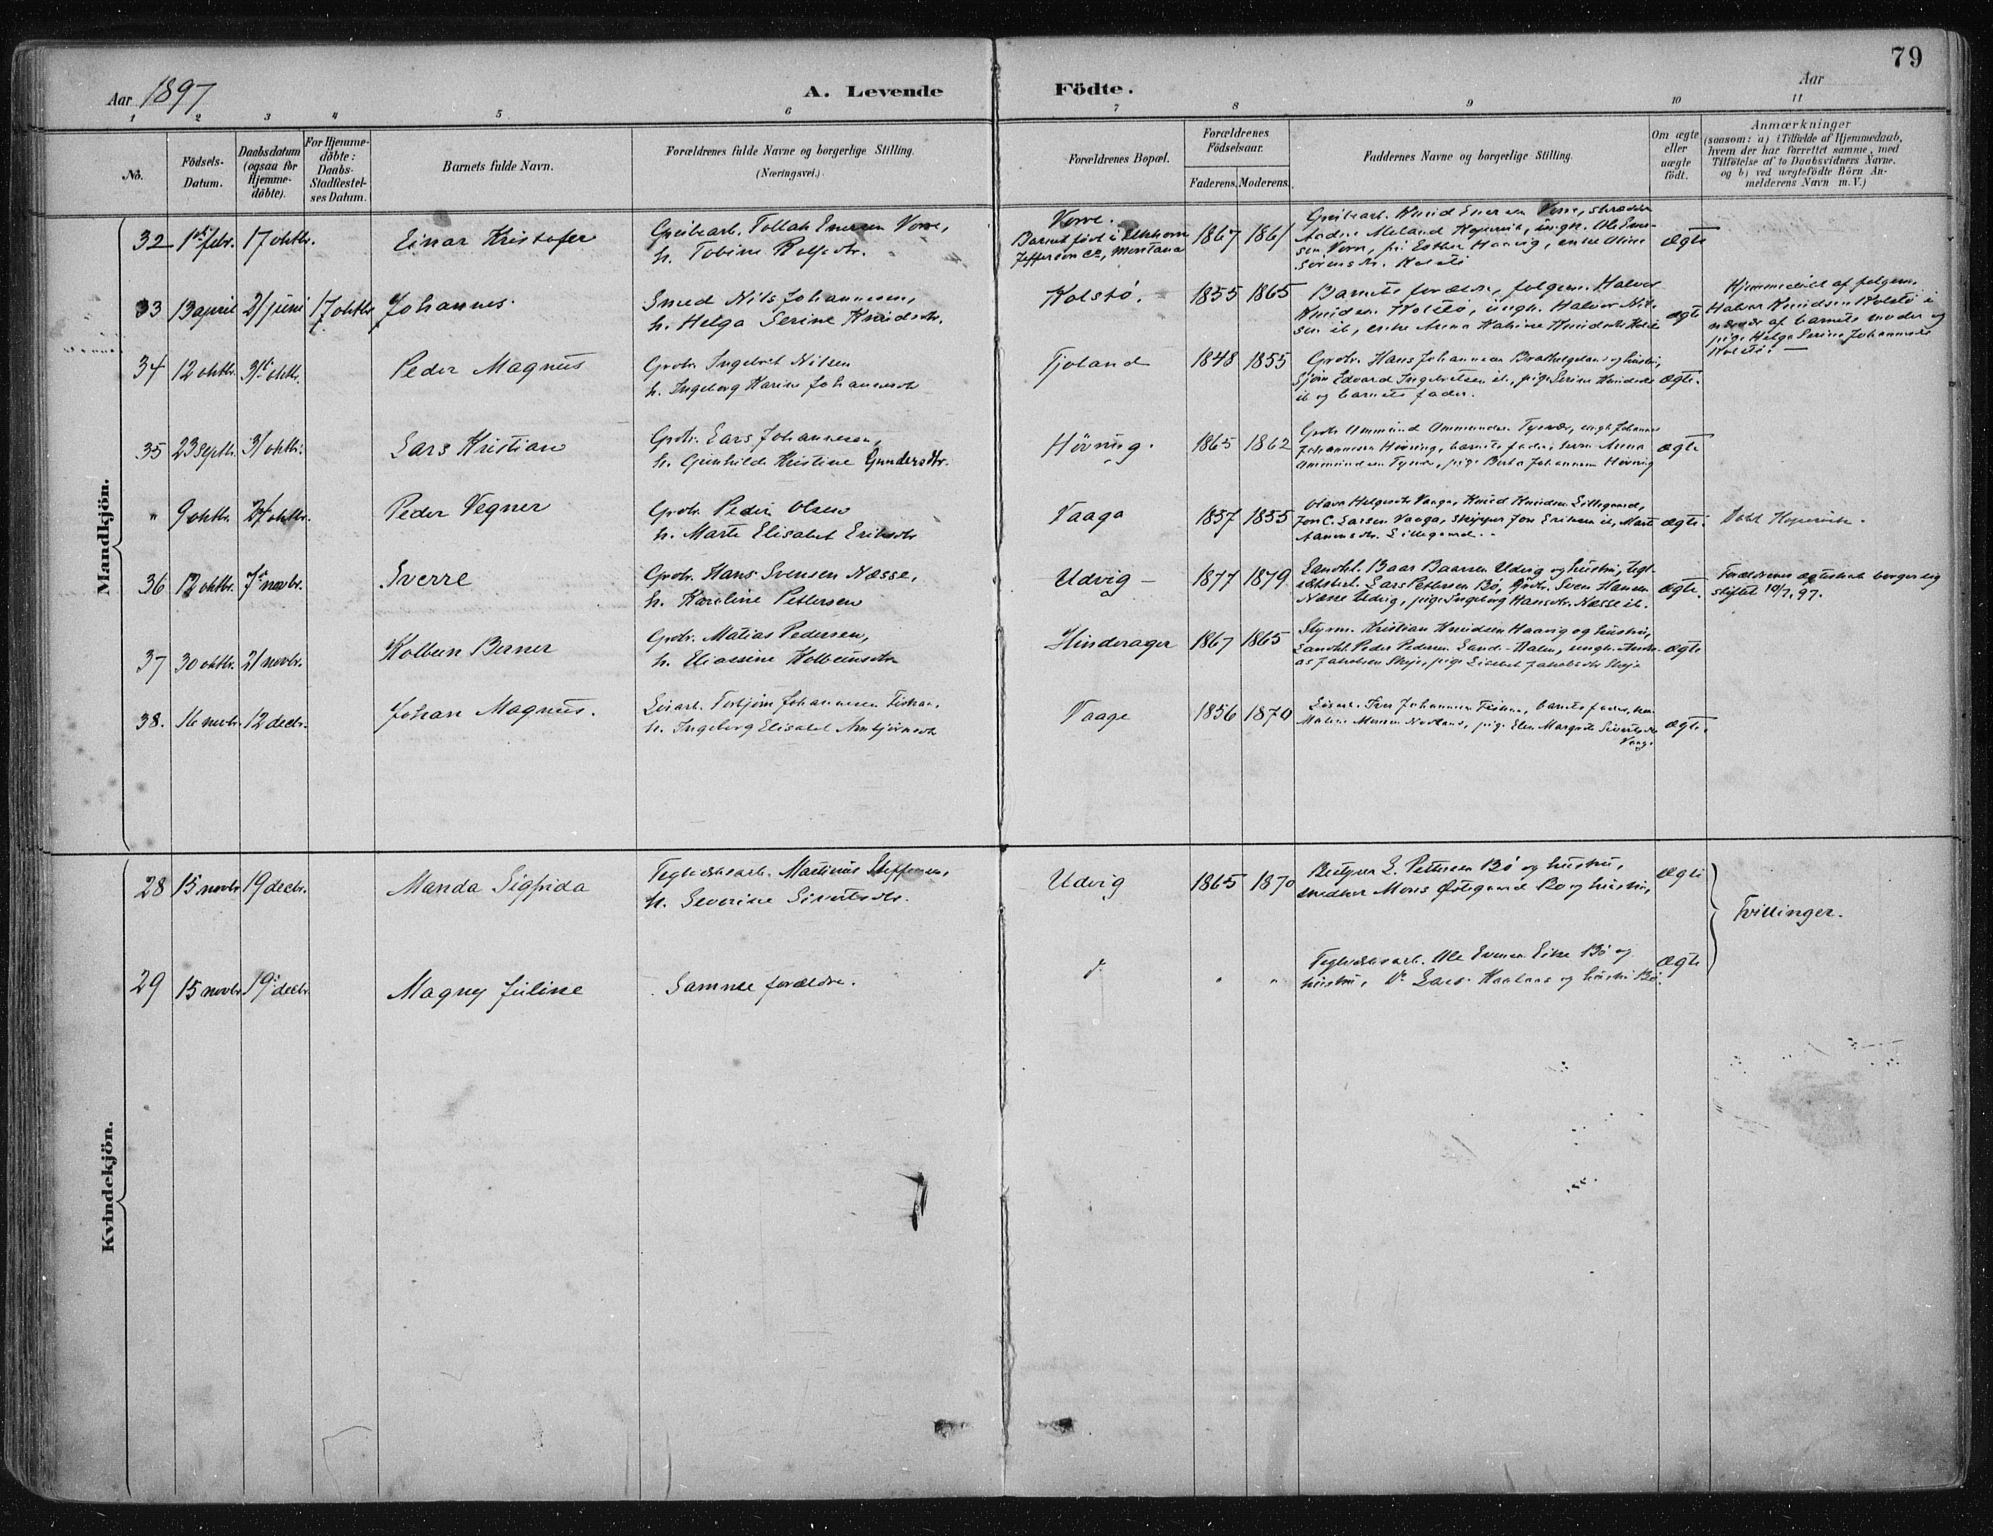 79
Aar 1897
A. Levende Födte.
Aar
1 2 3 4 5 6 7 8 9 10 11
No.
Födsels-Datum.
Daabsdatum (ogsaa for Hjemme-döbte).
For Hjemme-döbte: Daabs-Stadfæstel-ses Datum.
Barnets fulde Navn.
Forældrenes fulde Navne og borgerlige Stilling. (Næringsvei.)
Forældrenes Bopæl.
Forældrenes Födselsaar.
Faderens. Moderens.
Faddernes Navne og borgerlige Stilling.
Om ægte eller uægte födt.
Anmærkninger
(saasom: a) i Tilfælde af Hjemmedaab, hvem der har forrettet samme, med Tilföielse af to Daabsvidners Navne. og b) ved uægtefödte Börn An-melderens Navn m. V.)
Mandkjön.
32 1ste febr. 17 oktbr. Einar Kristofer
Tollak Enersen Vorre,
h. Tobine Rolfsdtr.
Vorre.
Barnet født i Elkhorn
Jefferson Co, Montana
1867 1861
Knud Enersen Vorre, skrædder
Meland Kopervik, ungk. Ole Ener-
sen Vorre, Esther Haavig, enke
Sørensdtr. Kolstö
ægte
33 13 april 21 juni 17 oktbr Johannes.
Smed Nils Johannesen,
h. Helga Serine Knudsdtr.
Kolstø. 1855 1865
Barnets forældre, følgem. Halvor
Knudsen Kolstø, ungk. Halvor Nil-
sen ib, enke Anna Katrine Knudsdtr Kolstø
ægte
Hjemmedøbt af følgem.
Halvor Knudsen Kolstø i
nærvær af barnets moder og
pige Helga Serine Johannesdtr
Kolstø.
34 12 oktbr. 31te oktbr. Peder Magnus
Grbr. Ingebret Nilsen
h. Ingeborg Karine Johannesdtr
Tjoland 1848 1855
Grbr. Hans Johannesen Bratthelgeland og hustru,
Edvard Ingebretsen ib., pige Serine Knudsdtr
ib og barnets fader.
ægte.
35 23 septbr. 31 oktbr. Lars Kristian
Grbr. Lars Johannesen,
h. Gunhilda Kristine Gundersdtr.
Høvring. 1865 1862
Grbr Ommund Ommundsen Tysvær, ungk Johannes
Johannesen Høvring, barnets fader, Anna
Ommundsen Tysvær, pige Berta Johannesen Høvring
ægte
" 9 oktbr. 24 oktbr. Peder Vegner
Grbr. Peder Olsen
h. Marte Elisabet Eriksdtr
Vaaga 1857 1855
Olava Helgesdtr Vaaga, Knud Knudsen Lillegaard,
Jon C. Larsen Vaaga, skipper Jon Eriksen ib, Marte
Lillegaard.
ægte.
Døbt Kopervik.
36 12 oktbr. 7de novbr. Sverre
Grbr. Hans Svensen Næsse,
h. Karoline Pettersen
Udvig 1877 1879
Landhl. Baar Baarsen Udvig og hustru,
Lars Pettersen Bø, Grbr. Sven Hansen
Næsse Udvig, pige Ingeborg Hansdtr. Næsse ib.
ægte.
Forældrenes ægteskab borgerlig
stiftet 10/7 97.
37 30 oktbr. 21 novbr. Kolbein Berner
Grbr. Matias Pedersen,
h. Eliassine Kolbeinsdtr
Hinderager 1867 1865
Styrm. Kristian Knudsen Haavig og hustru,
Landhl Peder Pedersen, ungk.
Jakobsen Skeje, pige Lisabet Jakobsdtr Skeje
ægte
38. 16 novbr. 12 decbr. Johan Magnus.
Torbjørn Johannesen Fiskaa,
h. Ingeborg Elisabet Asbjørnsdtr
Vaage 1856 1870
Iver Johannesen, barnets fader,
Malene Monsen, pige Elen Margrete Sivertsdtr
Vaage
ægte.
Kvindekjön.
28 15 novbr. 19 decbr. Manda Sigfrida
Teglværksarb. Martinus Steffensen,
h. Severine Sivertsdtr.
Udvig 1865 1870
Bestyrer L. Pettersen Bø og hustru,
snedker Mons Østegaard Bø og hustru,
ægte
Tvillinger.
29 15 novbr. 19de decbr. Magny Juline
Samme forældre.
" "
Teglværksarb. Ole Bø og
hustru, Do Lars og hustru Bø.
ægte